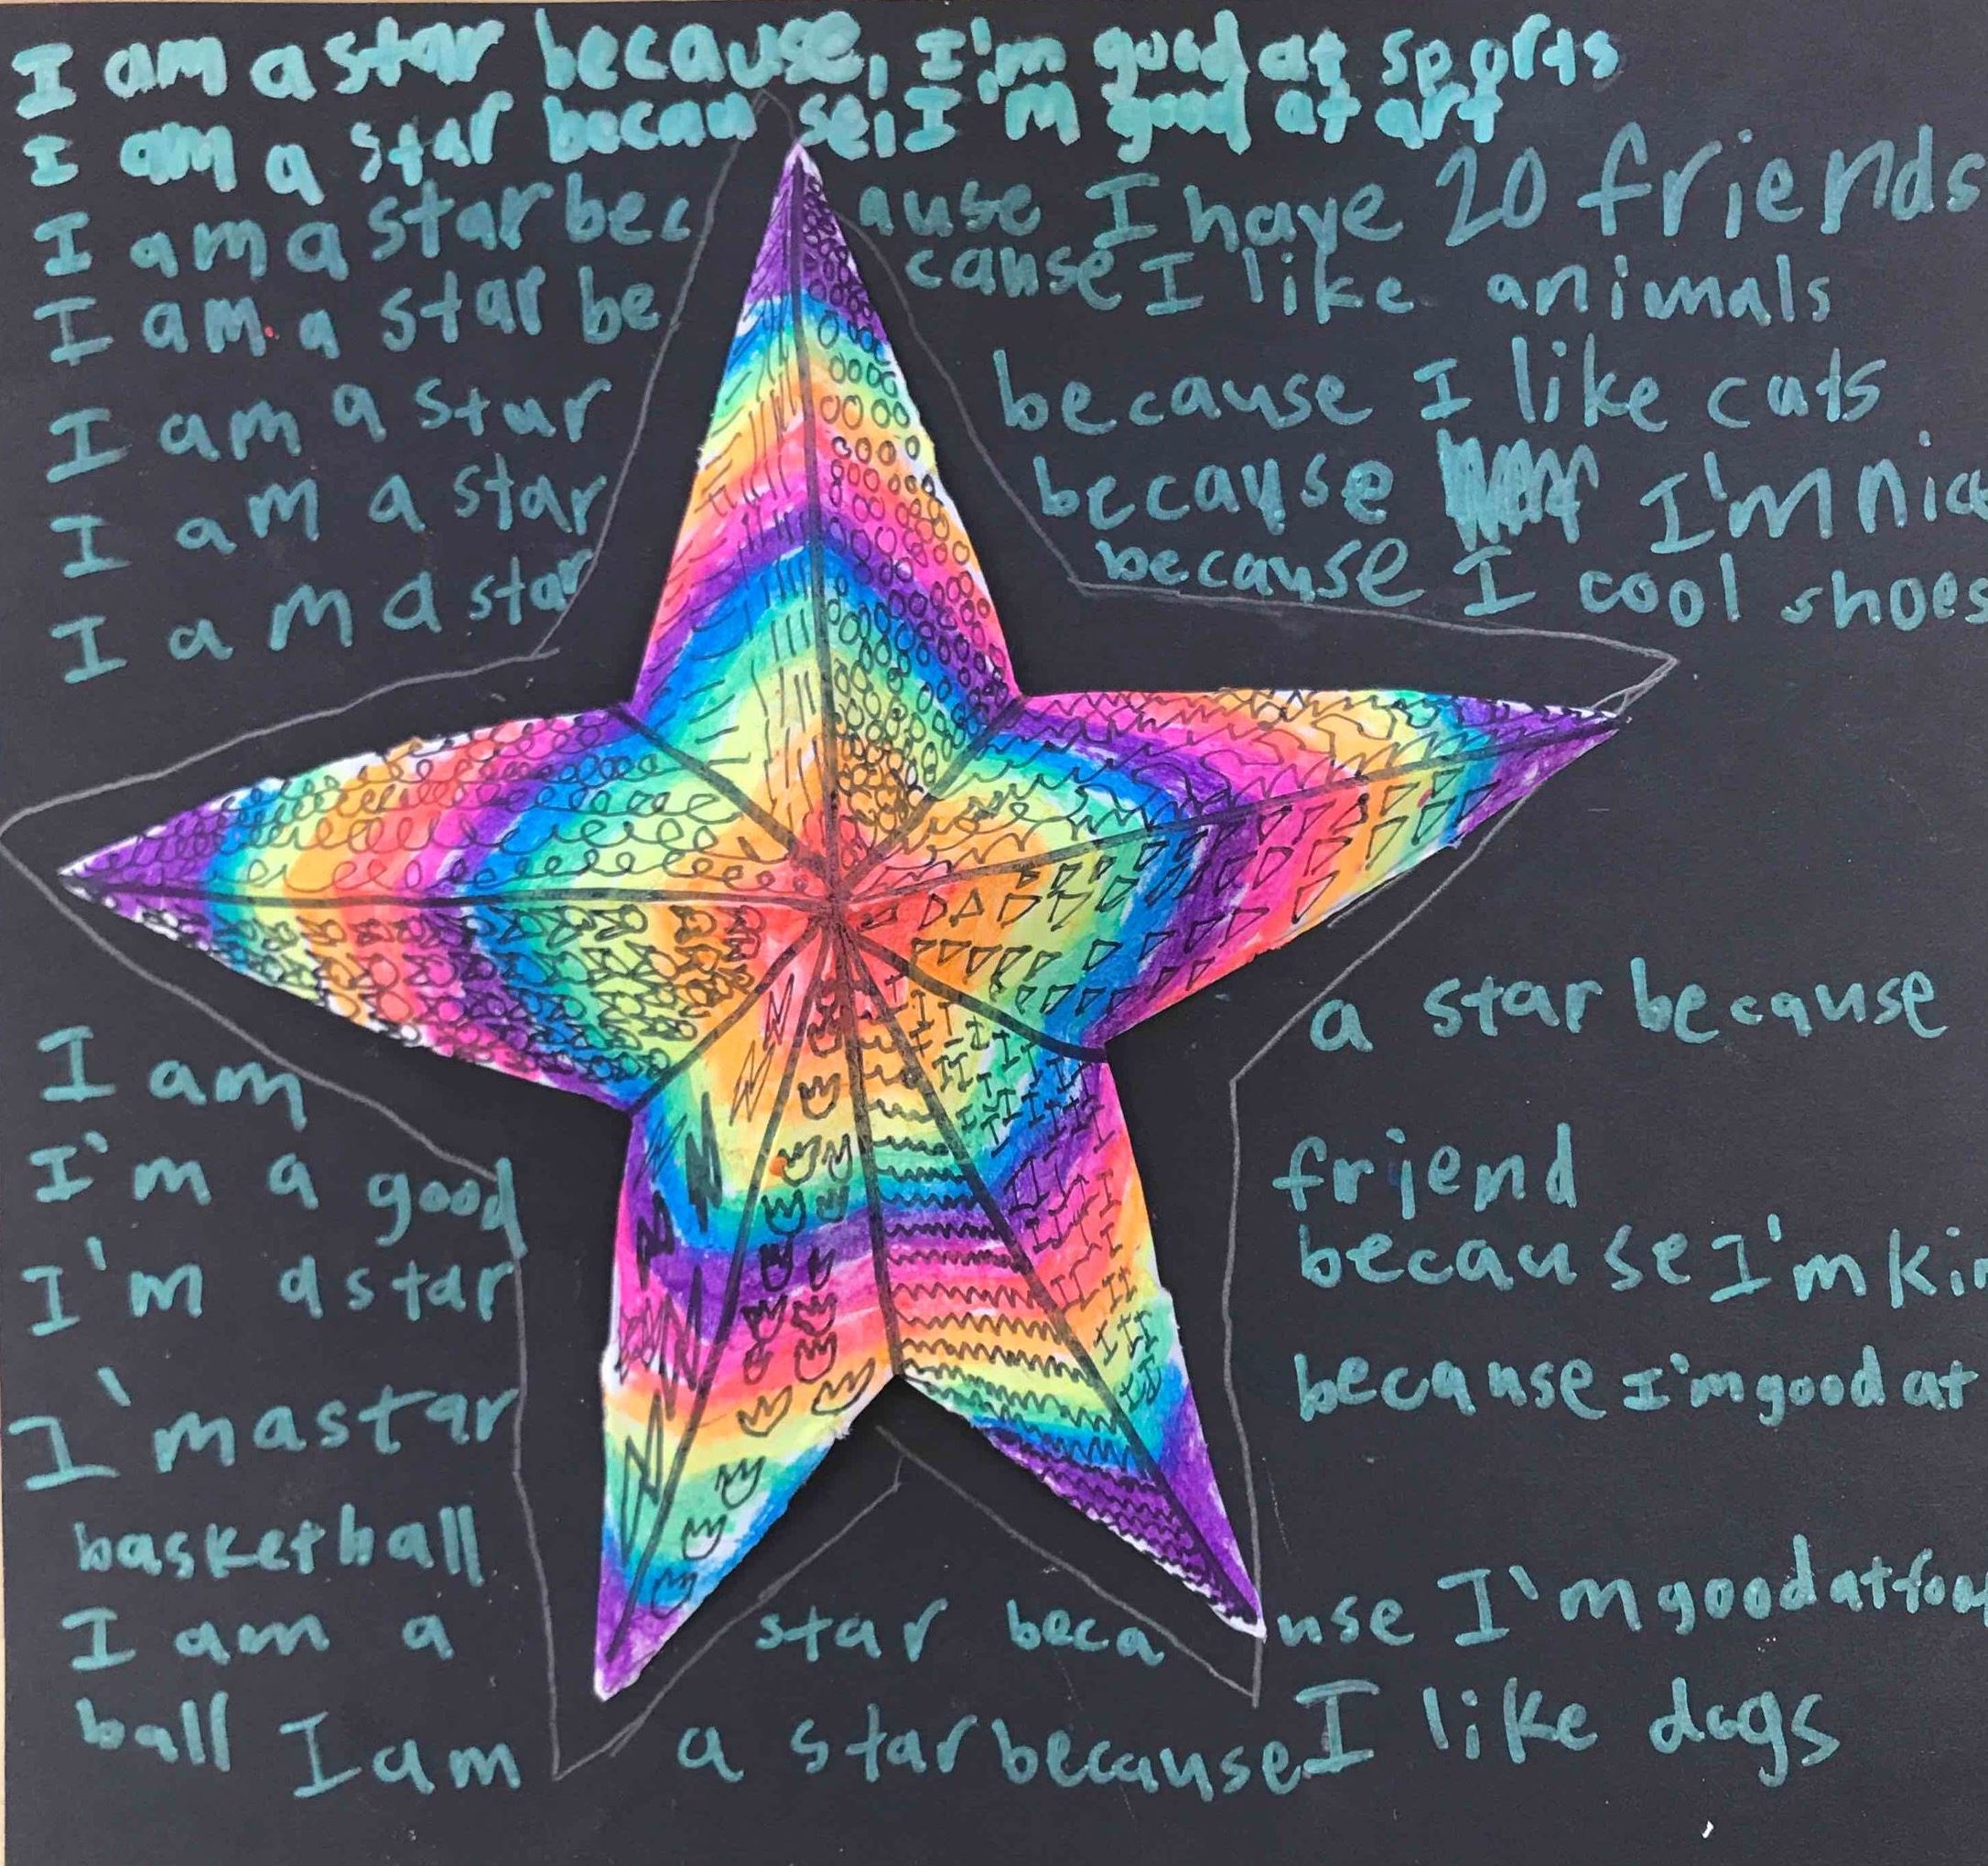 I am a star because, I'm good at spords
I am a star because, I'm good at art
I am a star because I have 20 friends
I am a star because I like animals
I am a star because I like cats
I am a star because I'm
I am a star because I cool shoes
I am a star because
I'm a good friend
I'm a star because I'm
I'm a star because I'm good at
basketball
I am a star because I'm good at
ball I am a star because I like dogs